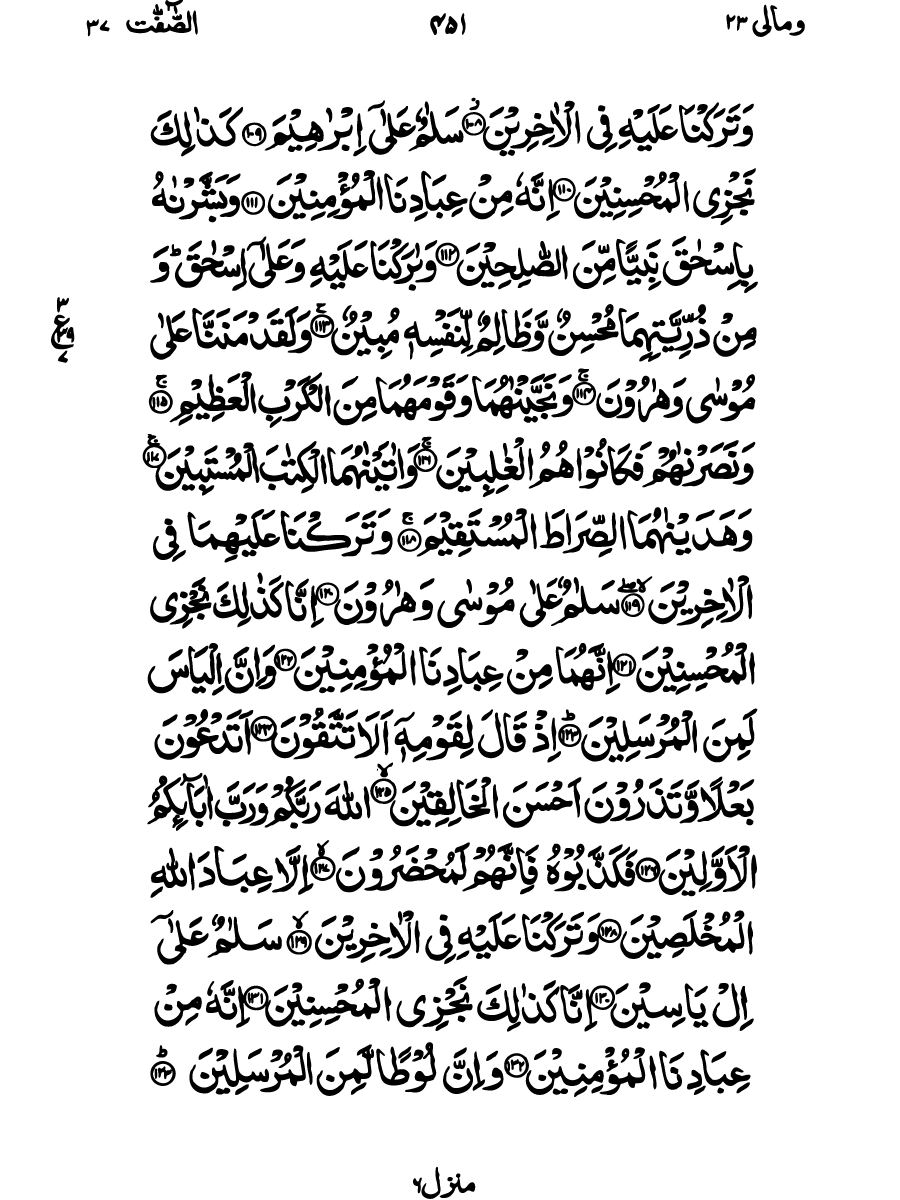 ومالی ۲۳ ۴۵۱ الصّٰٓفّٰت ۳۷
وَتَرَكْنَا عَلَيْهِ فِى الْاٰخِرِيْنَ ۖ۝۱۰۸ سَلٰمٌ عَلٰٓى اِبْرٰهِيْمَ ۝۱۰۹ كَذٰلِكَ
نَجْزِى الْمُحْسِنِيْنَ ۝۱۱۰ اِنَّهٗ مِنْ عِبَادِنَا الْمُؤْمِنِيْنَ ۝۱۱۱ وَبَشَّرْنٰهُ
بِاِسْحٰقَ نَبِيًّا مِّنَ الصّٰلِحِيْنَ ۝۱۱۲ وَبٰرَكْنَا عَلَيْهِ وَعَلٰٓى اِسْحٰقَ ؕ وَ
مِنْ ذُرِّيَّتِهِمَا مُحْسِنٌ وَّظَالِمٌ لِّنَفْسِهٖ مُبِيْنٌ ۚ۝۱۱۳ وَلَقَدْ مَنَنَّا عَلٰى
۳ ع ۳۹ ۷
مُوْسٰى وَهٰرُوْنَ ۚ۝۱۱۴ وَنَجَّيْنٰهُمَا وَقَوْمَهُمَا مِنَ الْكَرْبِ الْعَظِيْمِ ۚ۝۱۱۵
وَنَصَرْنٰهُمْ فَكَانُوْا هُمُ الْغٰلِبِيْنَ ۚ۝۱۱۶ وَاٰتَيْنٰهُمَا الْكِتٰبَ الْمُسْتَبِيْنَ ۚ۝۱۱۷
وَهَدَيْنٰهُمَا الصِّرَاطَ الْمُسْتَقِيْمَ ۚ۝۱۱۸ وَتَرَكْنَا عَلَيْهِمَا فِى
الْاٰخِرِيْنَ ۙ۝۱۱۹ سَلٰمٌ عَلٰى مُوْسٰى وَهٰرُوْنَ ۝۱۲۰ اِنَّا كَذٰلِكَ نَجْزِى
الْمُحْسِنِيْنَ ۝۱۲۱ اِنَّهُمَا مِنْ عِبَادِنَا الْمُؤْمِنِيْنَ ۝۱۲۲ وَاِنَّ اِلْيَاسَ
لَمِنَ الْمُرْسَلِيْنَ ؕ۝۱۲۳ اِذْ قَالَ لِقَوْمِهٖٓ اَلَا تَتَّقُوْنَ ۝۱۲۴ اَتَدْعُوْنَ
بَعْلًا وَّتَذَرُوْنَ اَحْسَنَ الْخَالِقِيْنَ ۙ۝۱۲۵ اللّٰهَ رَبَّكُمْ وَرَبَّ اٰبَآئِكُمُ
الْاَوَّلِيْنَ ۝۱۲۶ فَكَذَّبُوْهُ فَاِنَّهُمْ لَمُحْضَرُوْنَ ۙ۝۱۲۷ اِلَّا عِبَادَ اللّٰهِ
الْمُخْلَصِيْنَ ۝۱۲۸ وَتَرَكْنَا عَلَيْهِ فِى الْاٰخِرِيْنَ ۙ۝۱۲۹ سَلٰمٌ عَلٰٓى
اِلْ يَاسِيْنَ ۝۱۳۰ اِنَّا كَذٰلِكَ نَجْزِى الْمُحْسِنِيْنَ ۝۱۳۱ اِنَّهٗ مِنْ
عِبَادِنَا الْمُؤْمِنِيْنَ ۝۱۳۲ وَاِنَّ لُوْطًا لَّمِنَ الْمُرْسَلِيْنَ ؕ۝۱۳۳
منزل ۶